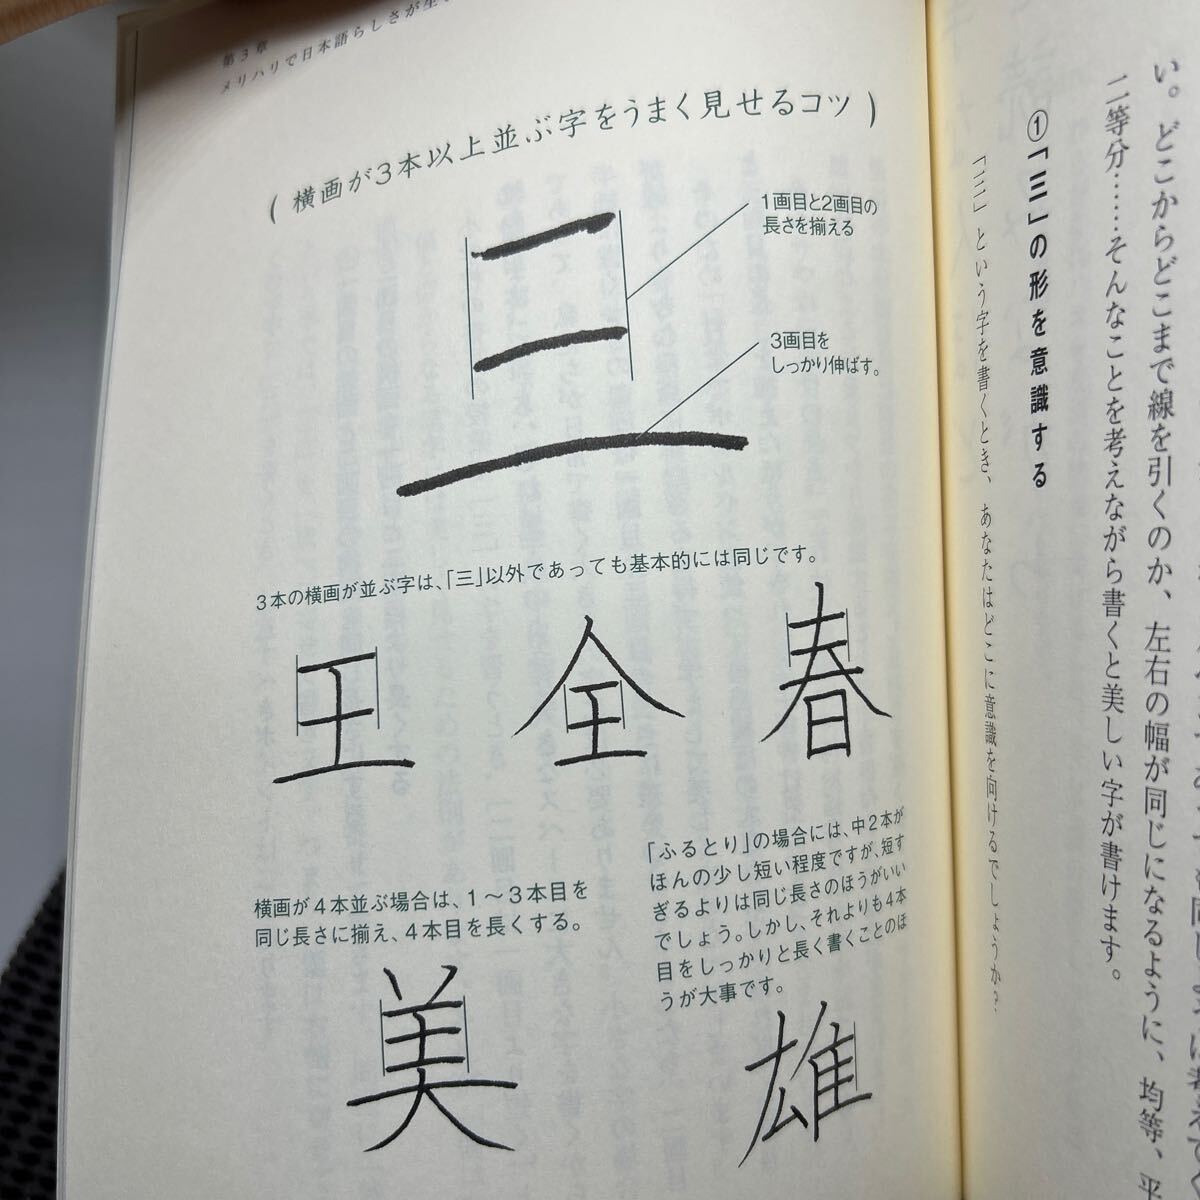 い。どこからどこまで線を引くのか、左右の幅が同じになるように、均等、平
二等分……そんなことを考えながら書くと美しい字が書けます。
①「三」の形を意識する
「三」という字を書くとき、あなたはどこに意識を向けるでしょうか?
第3章
メリハリで日本語らしさが生
(横画が3本以上並ぶ字をうまく見せるコツ)
三
1画目と2画目の
長さを揃える
3画目を
しっかり伸ばす。
3本の横画が並ぶ字は、「三」以外であっても基本的には同じです。
王 全 春
横画が4本並ぶ場合は、1〜3本目を
同じ長さに揃え、4本目を長くする。
美
「ふるとり」の場合には、中2本が
ほんの少し短い程度ですが、短す
ぎるよりは同じ長さのほうがいい
でしょう。しかし、それよりも4本
目をしっかりと長く書くことのほ
うが大事です。
雄